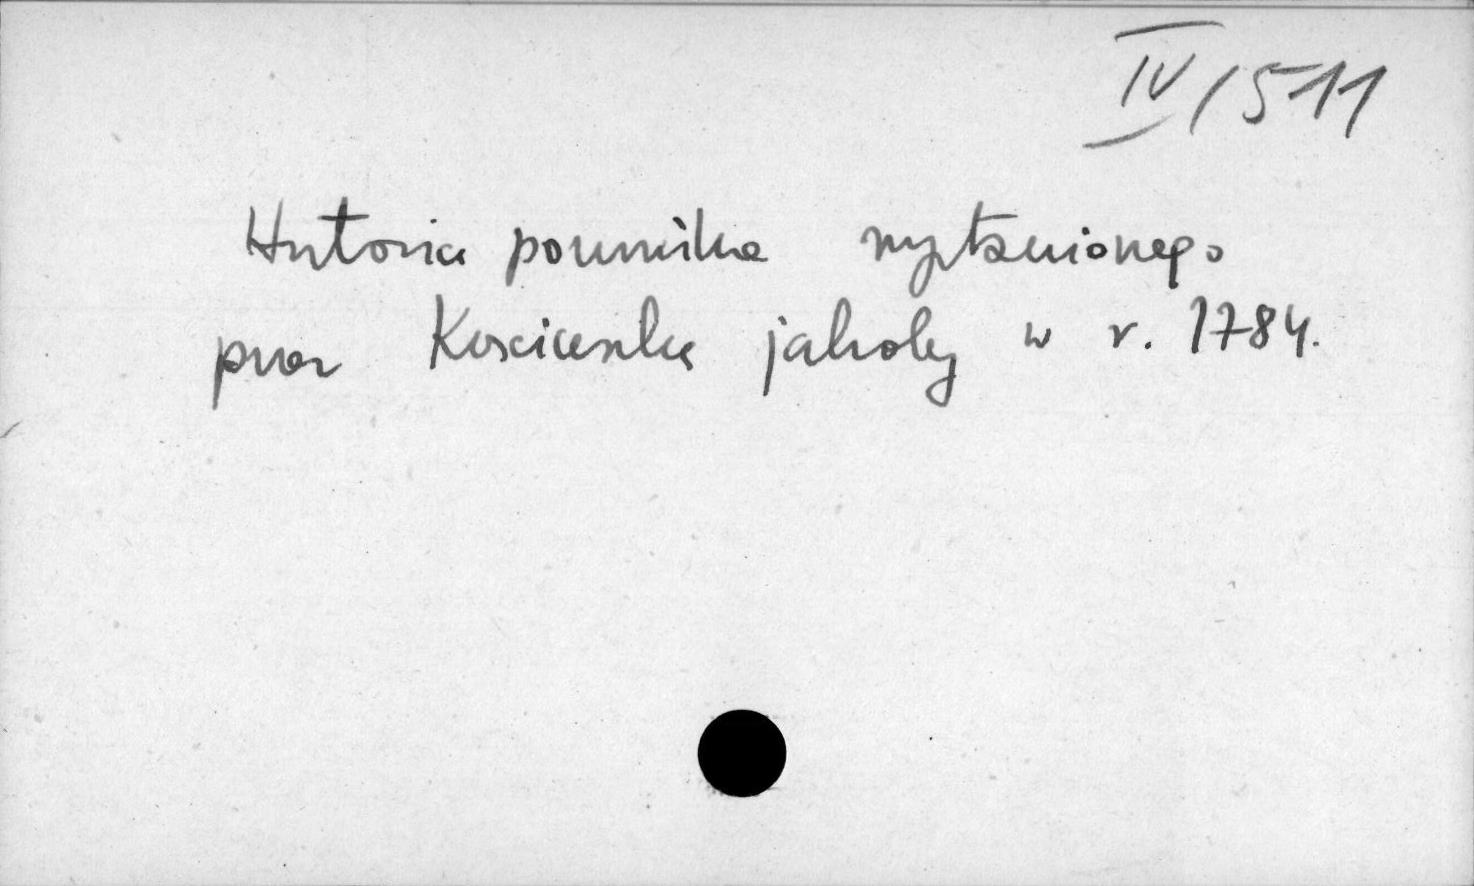 IV/511
Historia pomnika wystawionego
przez Kosciuszkę jakoby w r. 1784.